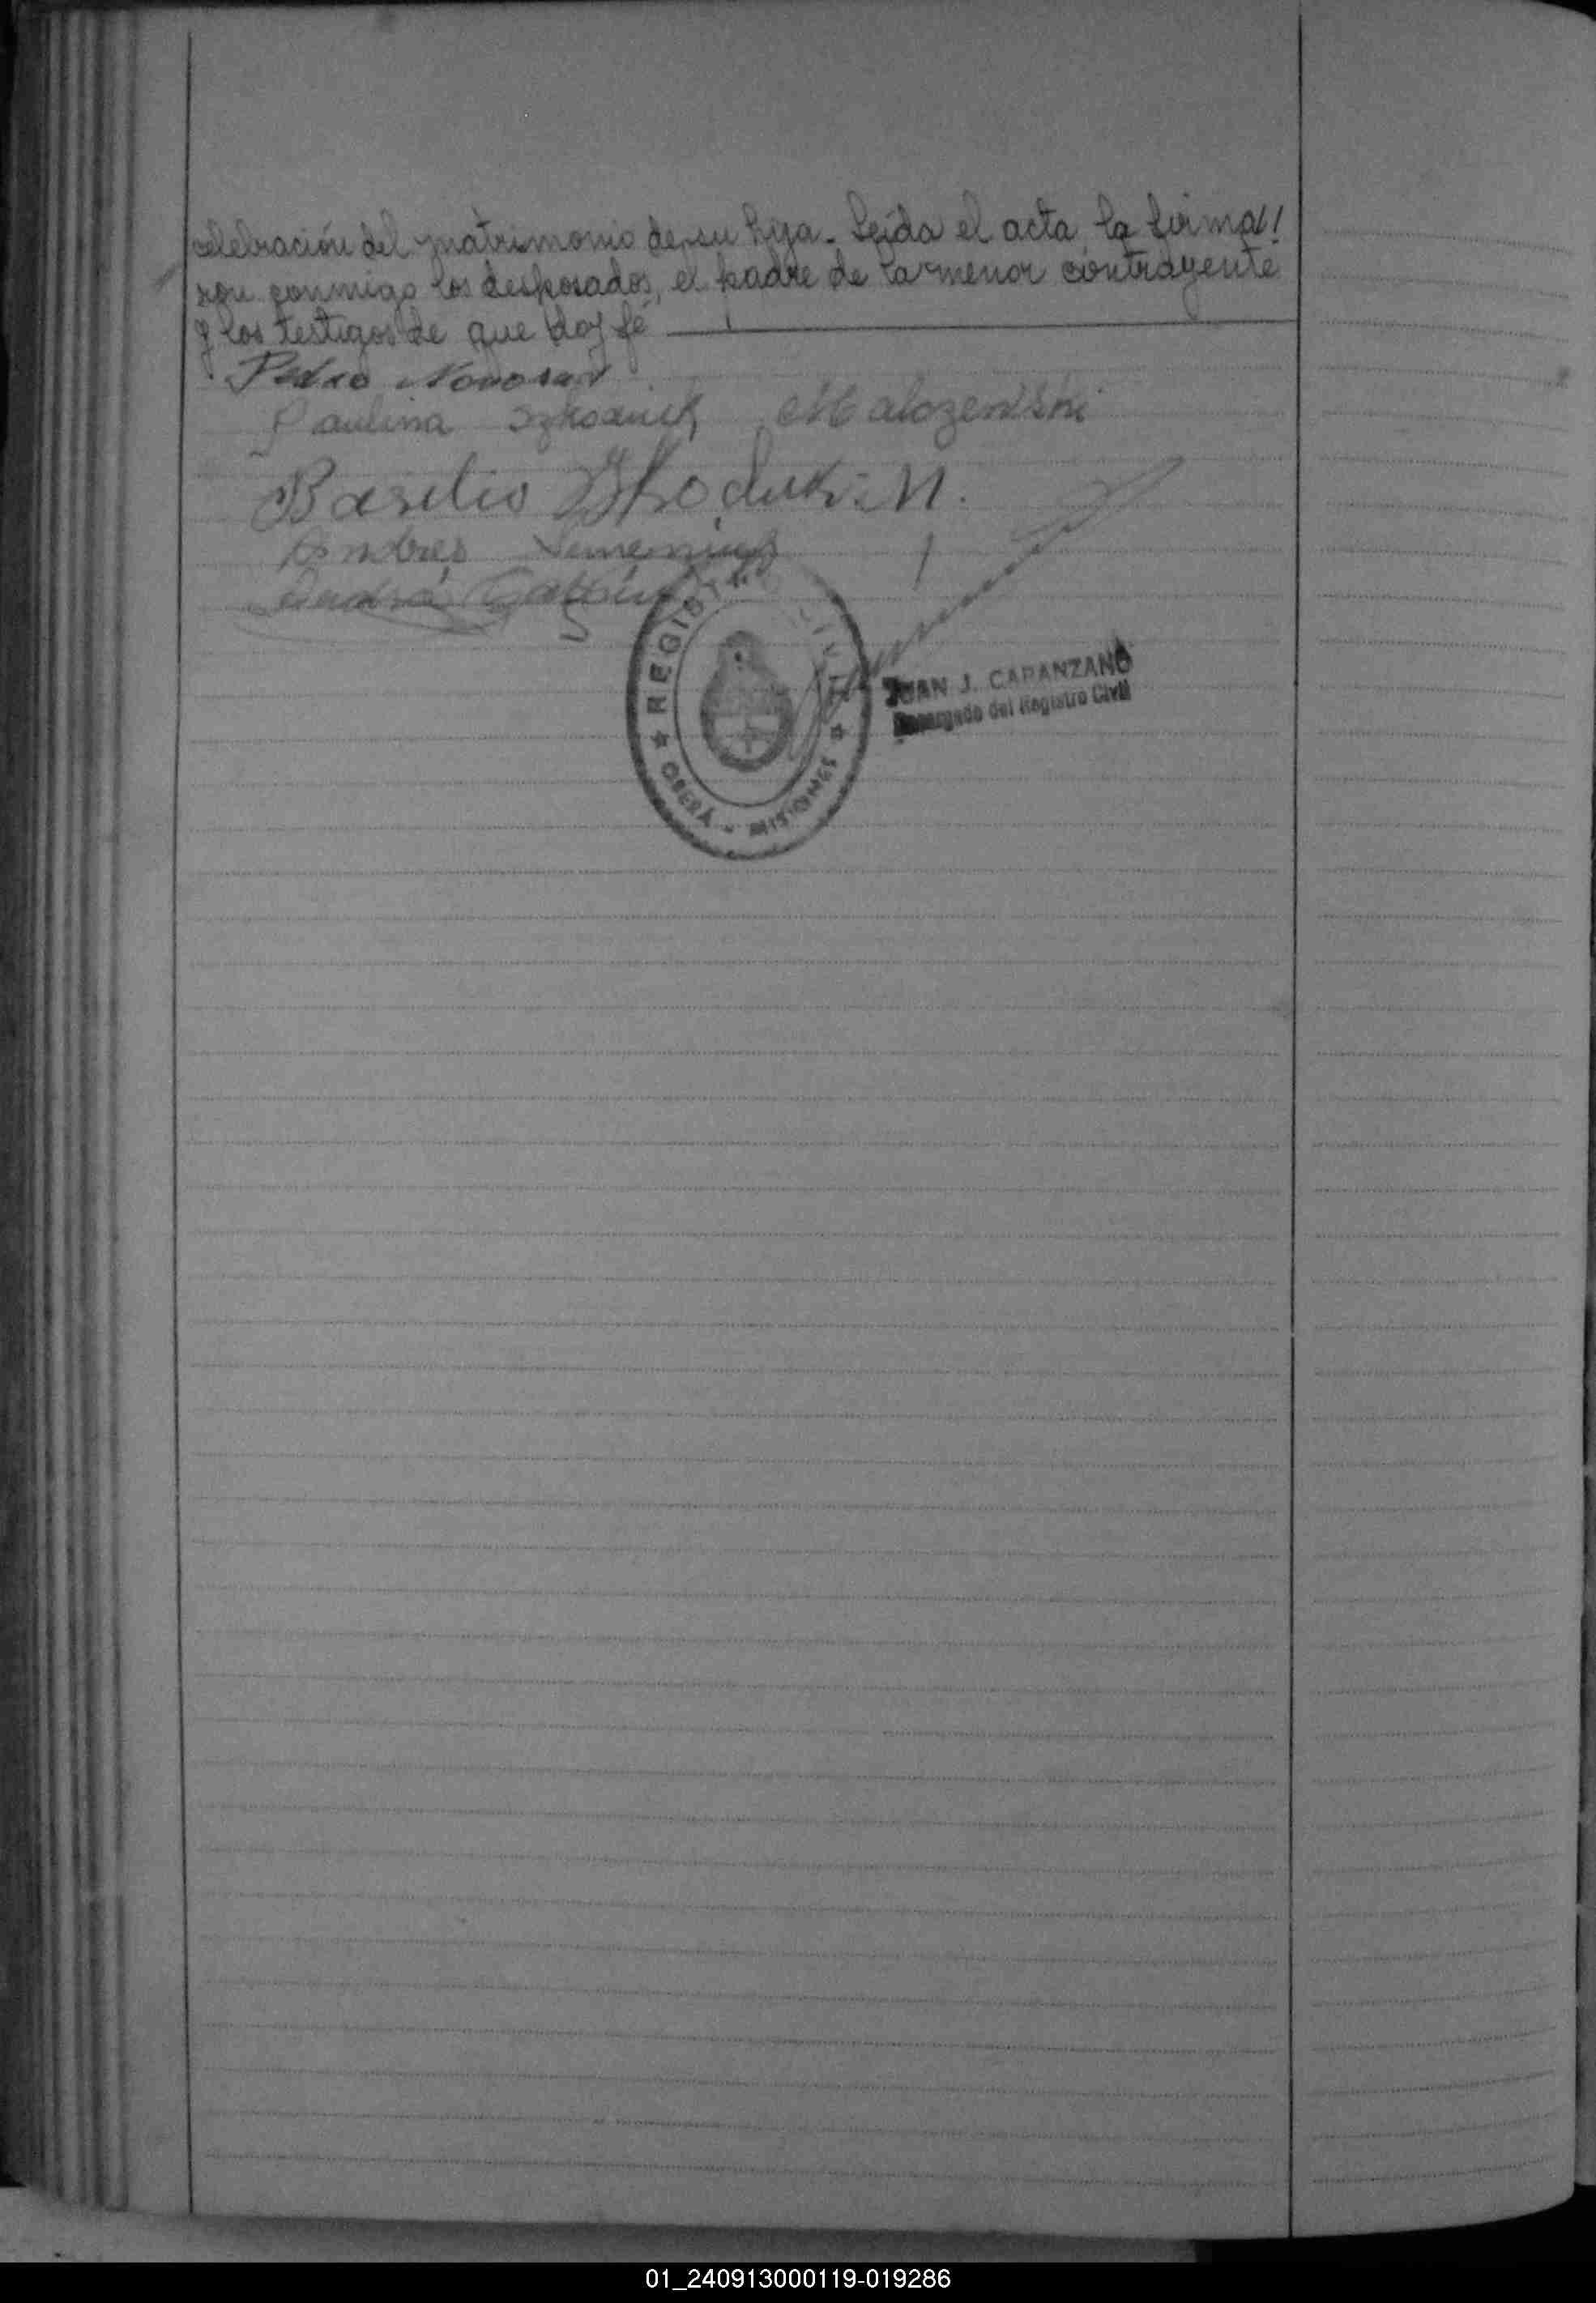 celebración del matrimonio de su hija. Leída el acta la firma//
ron conmigo los desposados, el padre de la menor contrayente
y los testigos de que doy fé
Pedro Novosad
Paulina Malozewski
Basilio N.
Andres
REGISTRO CIVIL
OBERÁ - MISIONES
JUAN J. CAPANZANO
Encargado del Registro Civil
01_240913000119-019286